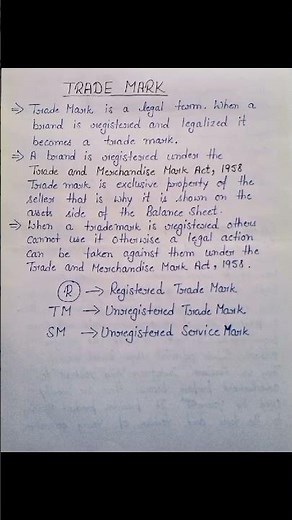 TRADE MARK
⇒ Trade Mark is a legal term. When a
brand is registered and legalized it
becomes a trade mark.
⇒ A brand is registered under the
Trade and Merchandise Mark Act, 1958
Trade mark is exclusive property of the
seller that is why it is shown on the
assets side of the Balance Sheet.
⇒ When a trademark is registered others
cannot use it otherwise a legal action
can be taken against them under the
Trade and Merchandise Mark Act, 1958.
Ⓡ → Registered Trade Mark
TM → Unregistered Trade Mark
SM → Unregistered Service Mark